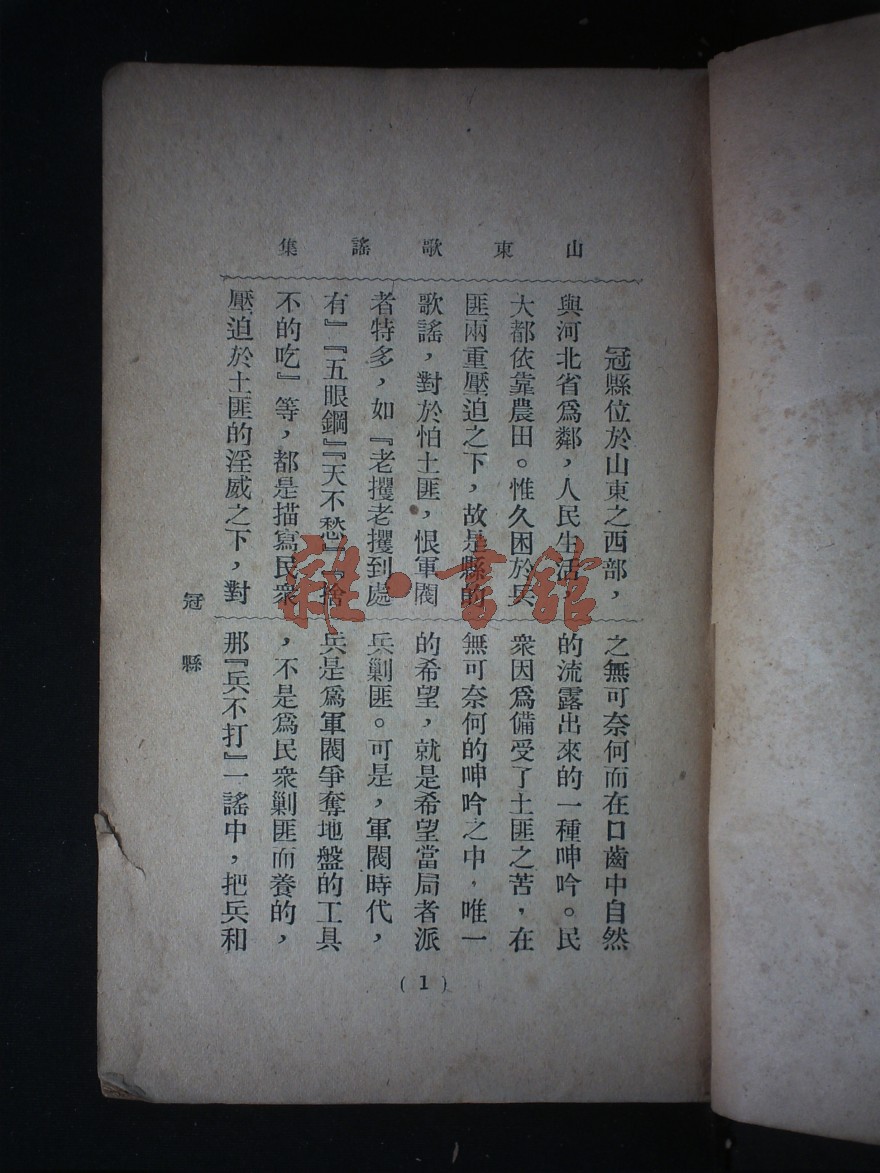 山東歌謠集
冠縣位於山東之西部，
與河北省爲鄰，人民生活，
大都依靠農田。惟久困於兵
匪兩重壓迫之下，故是縣的
歌謠，對於怕土匪，恨軍閥
者特多，如『老攫老攫到處
有』『五眼鋼』『天不愁』『捨
不的吃』等，都是描寫民衆
壓迫於土匪的淫威之下，對
之無可奈何而在口齒中自然
的流露出來的一種呻吟。民
衆因爲備受了土匪之苦，在
無可奈何的呻吟之中，唯一
的希望，就是希望當局者派
兵剿匪。可是，軍閥時代，
兵是爲軍閥爭奪地盤的工具
，不是爲民衆剿匪而養的，
那『兵不打』一謠中，把兵和
冠縣
（1）
雜·書館